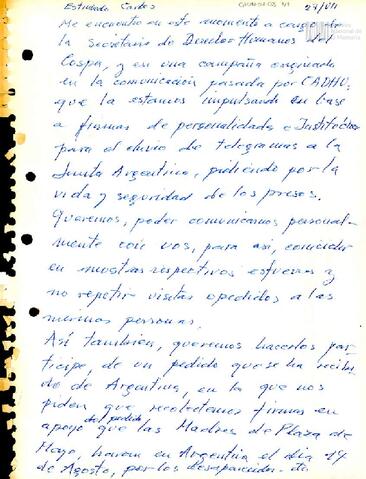 Estimado Carlos 27/VII
Me encuentro en este momento a cargo de
la Secretaria de Derechos Humanos del
Cospa, y en una campaña
en la comunicación pasada por CADHU,
que la estamos impulsando en base
a firmas de personalidades e Instituciones
para el envio de telegramas a la
Junta Argentina, pidiendo por la
vida y seguridad de los presos.
Queremos, poder comunicarnos personal-
mente con vos, para asi, coincidir
en nuestros respectivos esfuerzos y
no repetir visitas o pedidos a las
mismas personas.
Asi tambien, queremos hacerlos par-
ticipe, de un pedido que se ha recibi-
do de Argentina, en la que nos
piden que recolectemos firmas en
apoyo del pedido que las Madres de Plaza de
Mayo, haran en Argentina el dia 14
de Agosto, por los desaparecidos.